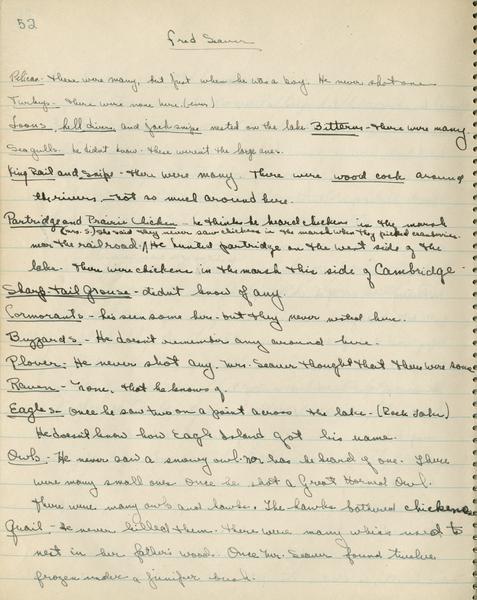 52
Fred Seaver
Pelican - There were many, but just when he was a boy. He never shot one
Turkeys - there were none here (ever)
Loons, hell divers and jack snipe nested on the lake. Bitterns - there were many
Seagulls. he didn't know. There weren't the large ones.
King Rail and Snipe - there were many. There were wood cock around
the rivers - not so much around here.
Partridge and Prairie Chicken - he thinks he heard chickens in the marsh
(Mrs. S) She said they never saw chickens in the marsh when they picked cranberries
near the railroad. He hunted partridge on the west side of the
lake. There were chickens in the marsh this side of Cambridge.
Sharp tail Grouse - didn't know of any.
Cormorants - his seen some here - but they never nested here.
Buzzards - He doesn't remember any around here.
Plover - He never shot any. Mrs. Seaver thought that there were some
Raven - none. that he knows of.
Eagles - once he saw two on a point across the lake - (Rock Lake)
He doesn't know how Eagle Island got his name.
Owls - He never saw a snowy owl nor has he heard of one. There
were many small ones. Once he shot a Great Horned Owl.
There were many owls and hawks. The hawks bothered chickens
Quail - He never killed them. There were many which used to
nest in her father's wood. Once Mr. Seaver found twelve
frozen under a juniper bush.